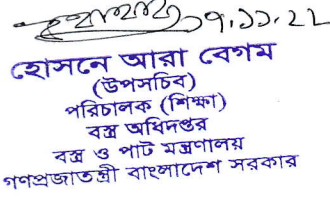 ৭.১১.২২
হোসনে আরা বেগম
(উপসচিব)
পরিচালক (শিক্ষা)
বস্ত্র অধিদপ্তর
বস্ত্র ও পাট মন্ত্রণালয়
গণপ্রজাতন্ত্রী বাংলাদেশ সরকার